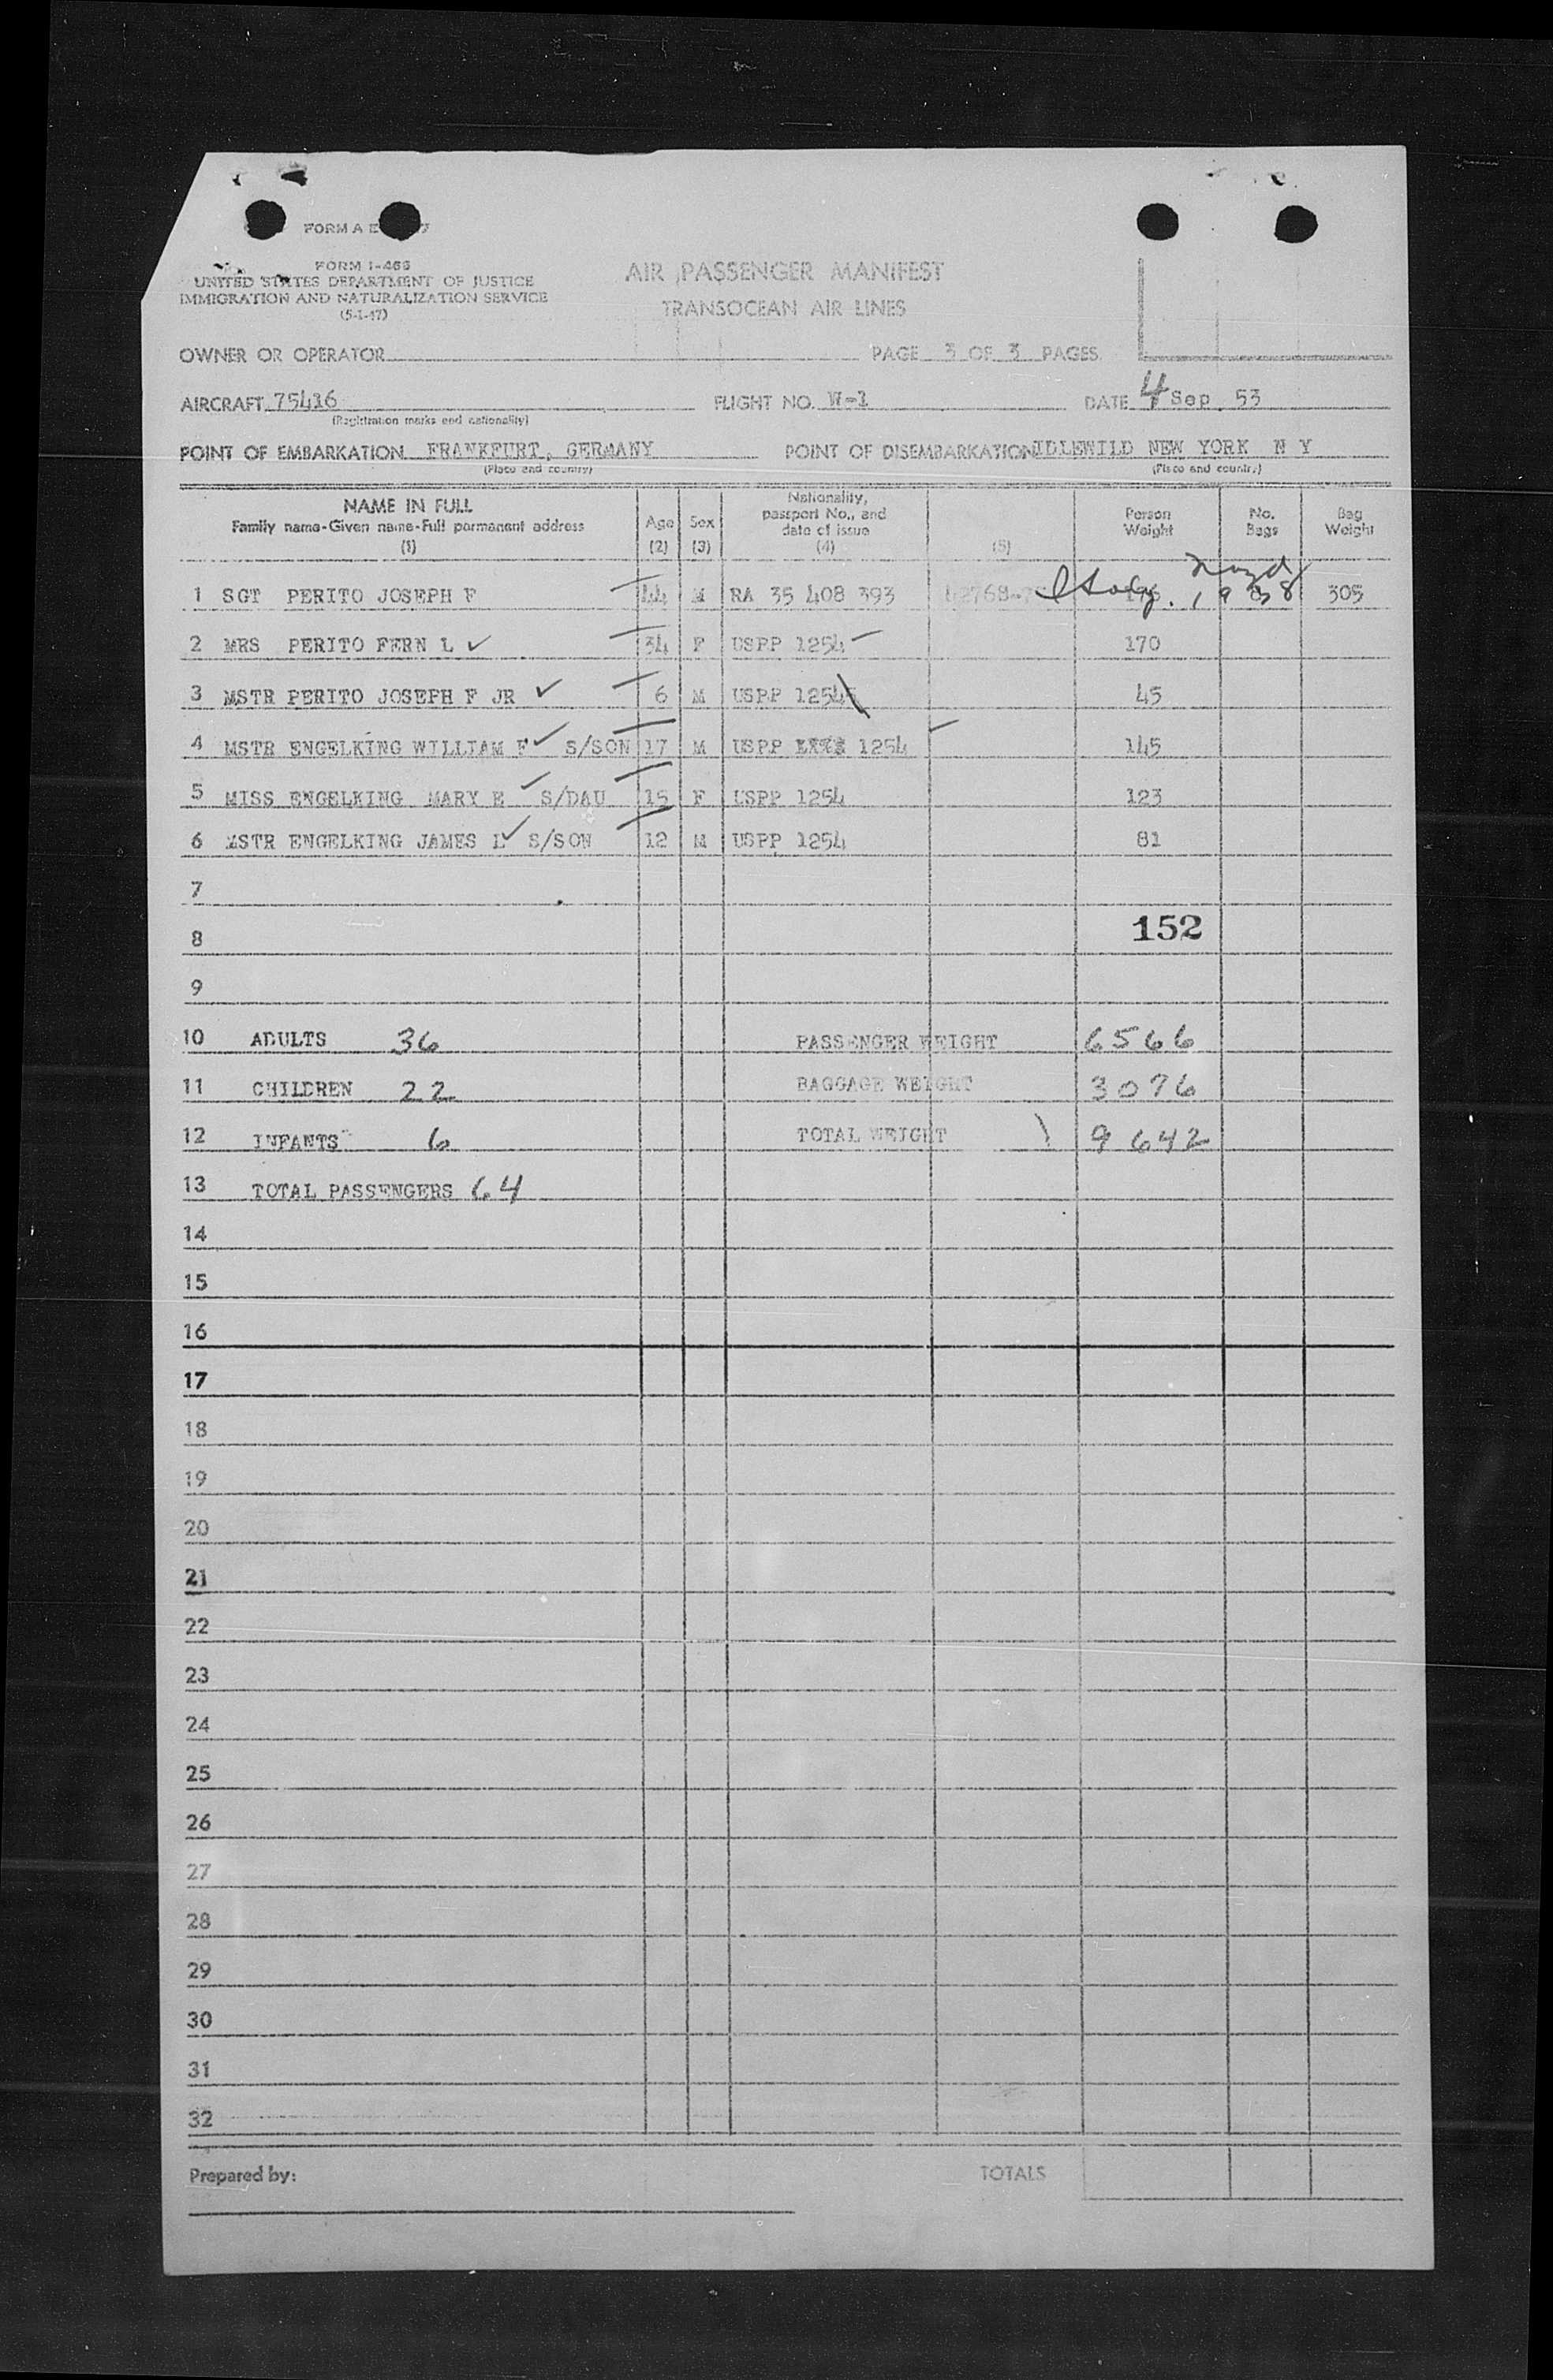 FORM A E
FORM I-466
UNITED STATES DEPARTMENT OF JUSTICE
IMMIGRATION AND NATURALIZATION SERVICE
(5-1-47)
AIR PASSENGER MANIFEST
TRANSOCEAN AIR LINES
OWNER OR OPERATOR PAGE 3 OF 3 PAGES
AIRCRAFT 75416 FLIGHT NO. W-1 DATE 4 Sep 53
(Registration marks and nationality)
POINT OF EMBARKATION FRANKFURT, GERMANY POINT OF DISEMBARKATION IDLEWILD NEW YORK N Y
(Place and country) (Place and country)
NAME IN FULL
Family name-Given name-Full permanent address
(1)
Age
(2)
Sex
(3)
Nationality,
passport No., and
date of issue
(4)
(5)
Person
Weight
No.
Bags
Bag
Weight
1 SGT PERITO JOSEPH F 44 M RA 35 408 393 Italy. 1938 305
2 MRS PERITO FERN L ✓ 34 F USPP 1254 170
3 MSTR PERITO JOSEPH F JR ✓ 6 M USPP 1254 45
4 MSTR ENGELKING WILLIAM F ✓ S/SON 17 M USPP 1254 145
5 MISS ENGELKING MARY E ✓ S/DAU 15 F USPP 1254 123
6 MSTR ENGELKING JAMES L ✓ S/SON 12 M USPP 1254 81
7
8 152
9
10 ADULTS 36 PASSENGER WEIGHT 6566
11 CHILDREN 22 BAGGAGE WEIGHT 3076
12 INFANTS 6 TOTAL WEIGHT 9642
13 TOTAL PASSENGERS 64
14
15
16
17
18
19
20
21
22
23
24
25
26
27
28
29
30
31
32
Prepared by: TOTALS